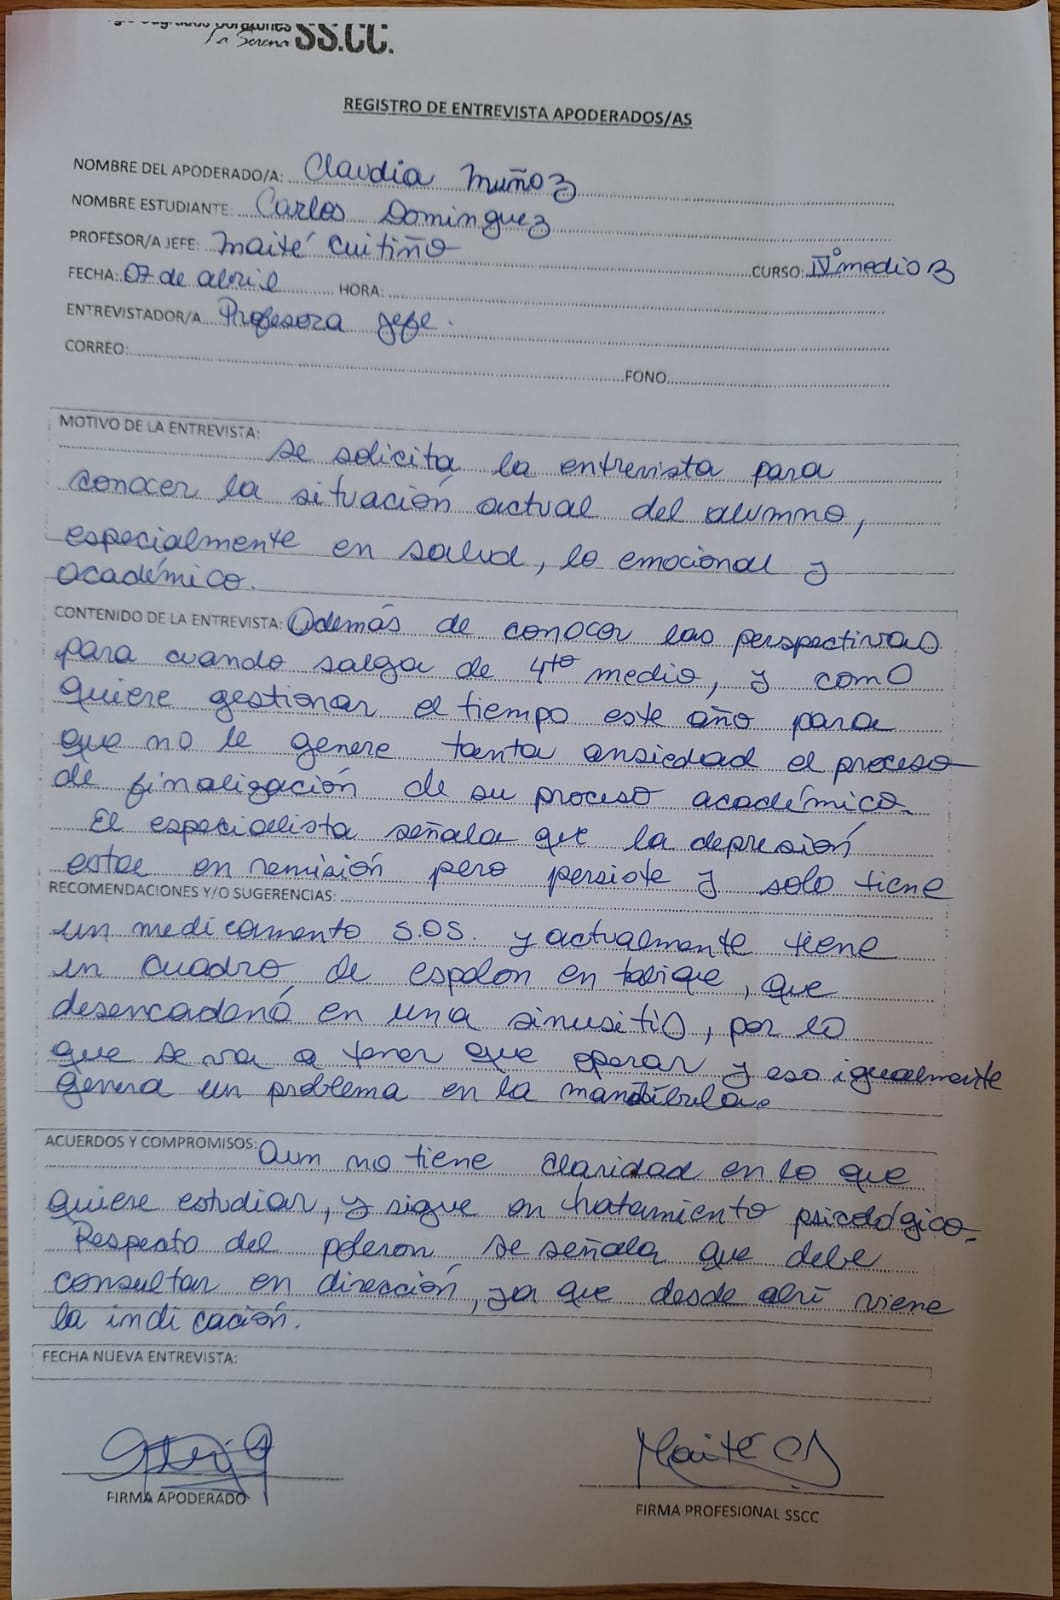 Sagrados Corazones
La Serena SS.CC.
REGISTRO DE ENTREVISTA APODERADOS/AS
NOMBRE DEL APODERADO/A: Claudia Muñoz
NOMBRE ESTUDIANTE: Carlos Dominguez
PROFESOR/A JEFE: Maité Cuitiño CURSO: IVº medio B
FECHA: 07 de abril HORA:
ENTREVISTADOR/A Profesora jefe.
CORREO: FONO
MOTIVO DE LA ENTREVISTA: se solicita la entrevista para
conocer la situación actual del alumno,
especialmente en salud, lo emocional y
académico.
CONTENIDO DE LA ENTREVISTA: Además de conocer las perspectivas
para cuando salga de 4to medio, y como
quiere gestionar el tiempo este año para
que no le genere tanta ansiedad el proceso
de finalización de su proceso académico.
El especialista señala que la depresión
estae en remisión pero persiste y solo tiene
RECOMENDACIONES Y/O SUGERENCIAS:
un medicamento S.O.S. y actualmente tiene
un cuadro de espolon en tabique, que
desencadenó en una sinusitis, por lo
que se va a tener que operar y eso igualmente
genera un problema en la mandíbula.
ACUERDOS Y COMPROMISOS: Aun no tiene claridad en lo que
quiere estudiar, y sigue en tratamiento psicológico.
Respecto del poleron, se señala que debe
consultar en dirección, ya que desde ahí viene
la indicación.
FECHA NUEVA ENTREVISTA:
Maité
FIRMA APODERADO
FIRMA PROFESIONAL SSCC